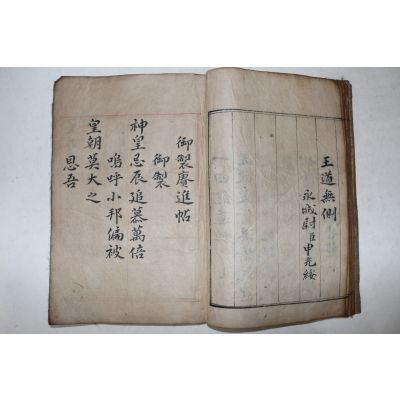 王道無側
永城尉臣申光綏
御製賡進帖
御製
神皇忌辰追慕萬倍
嗚呼小邦偏被
皇朝莫大之
恩吾